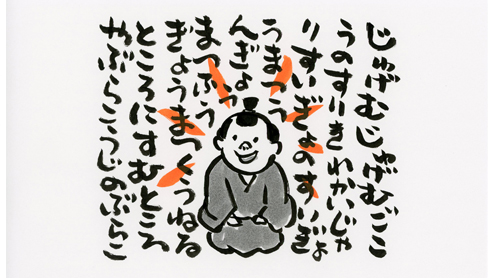 じゅげむじゅげむごこ
うのすりきれかいじゃ
りすいぎょのすいぎょ
うまつう
んぎょう
まつふう
ぎょうまつくうねる
ところにすむところ
やぶらこうじのぶらこ